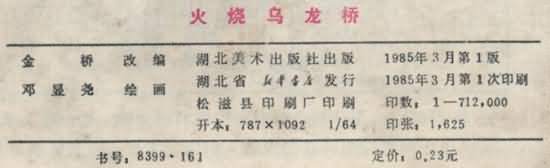 火烧乌龙桥
金桥 改编 湖北美术出版社出版 1985年3月第1版
邓显尧 绘画 湖北省新华书店发行 1985年3月第1次印刷
松滋县印刷厂印刷 印数：1—712,000
开本：787×1092 1/64 印张：1,625
书号：8399·161 定价：0.23元